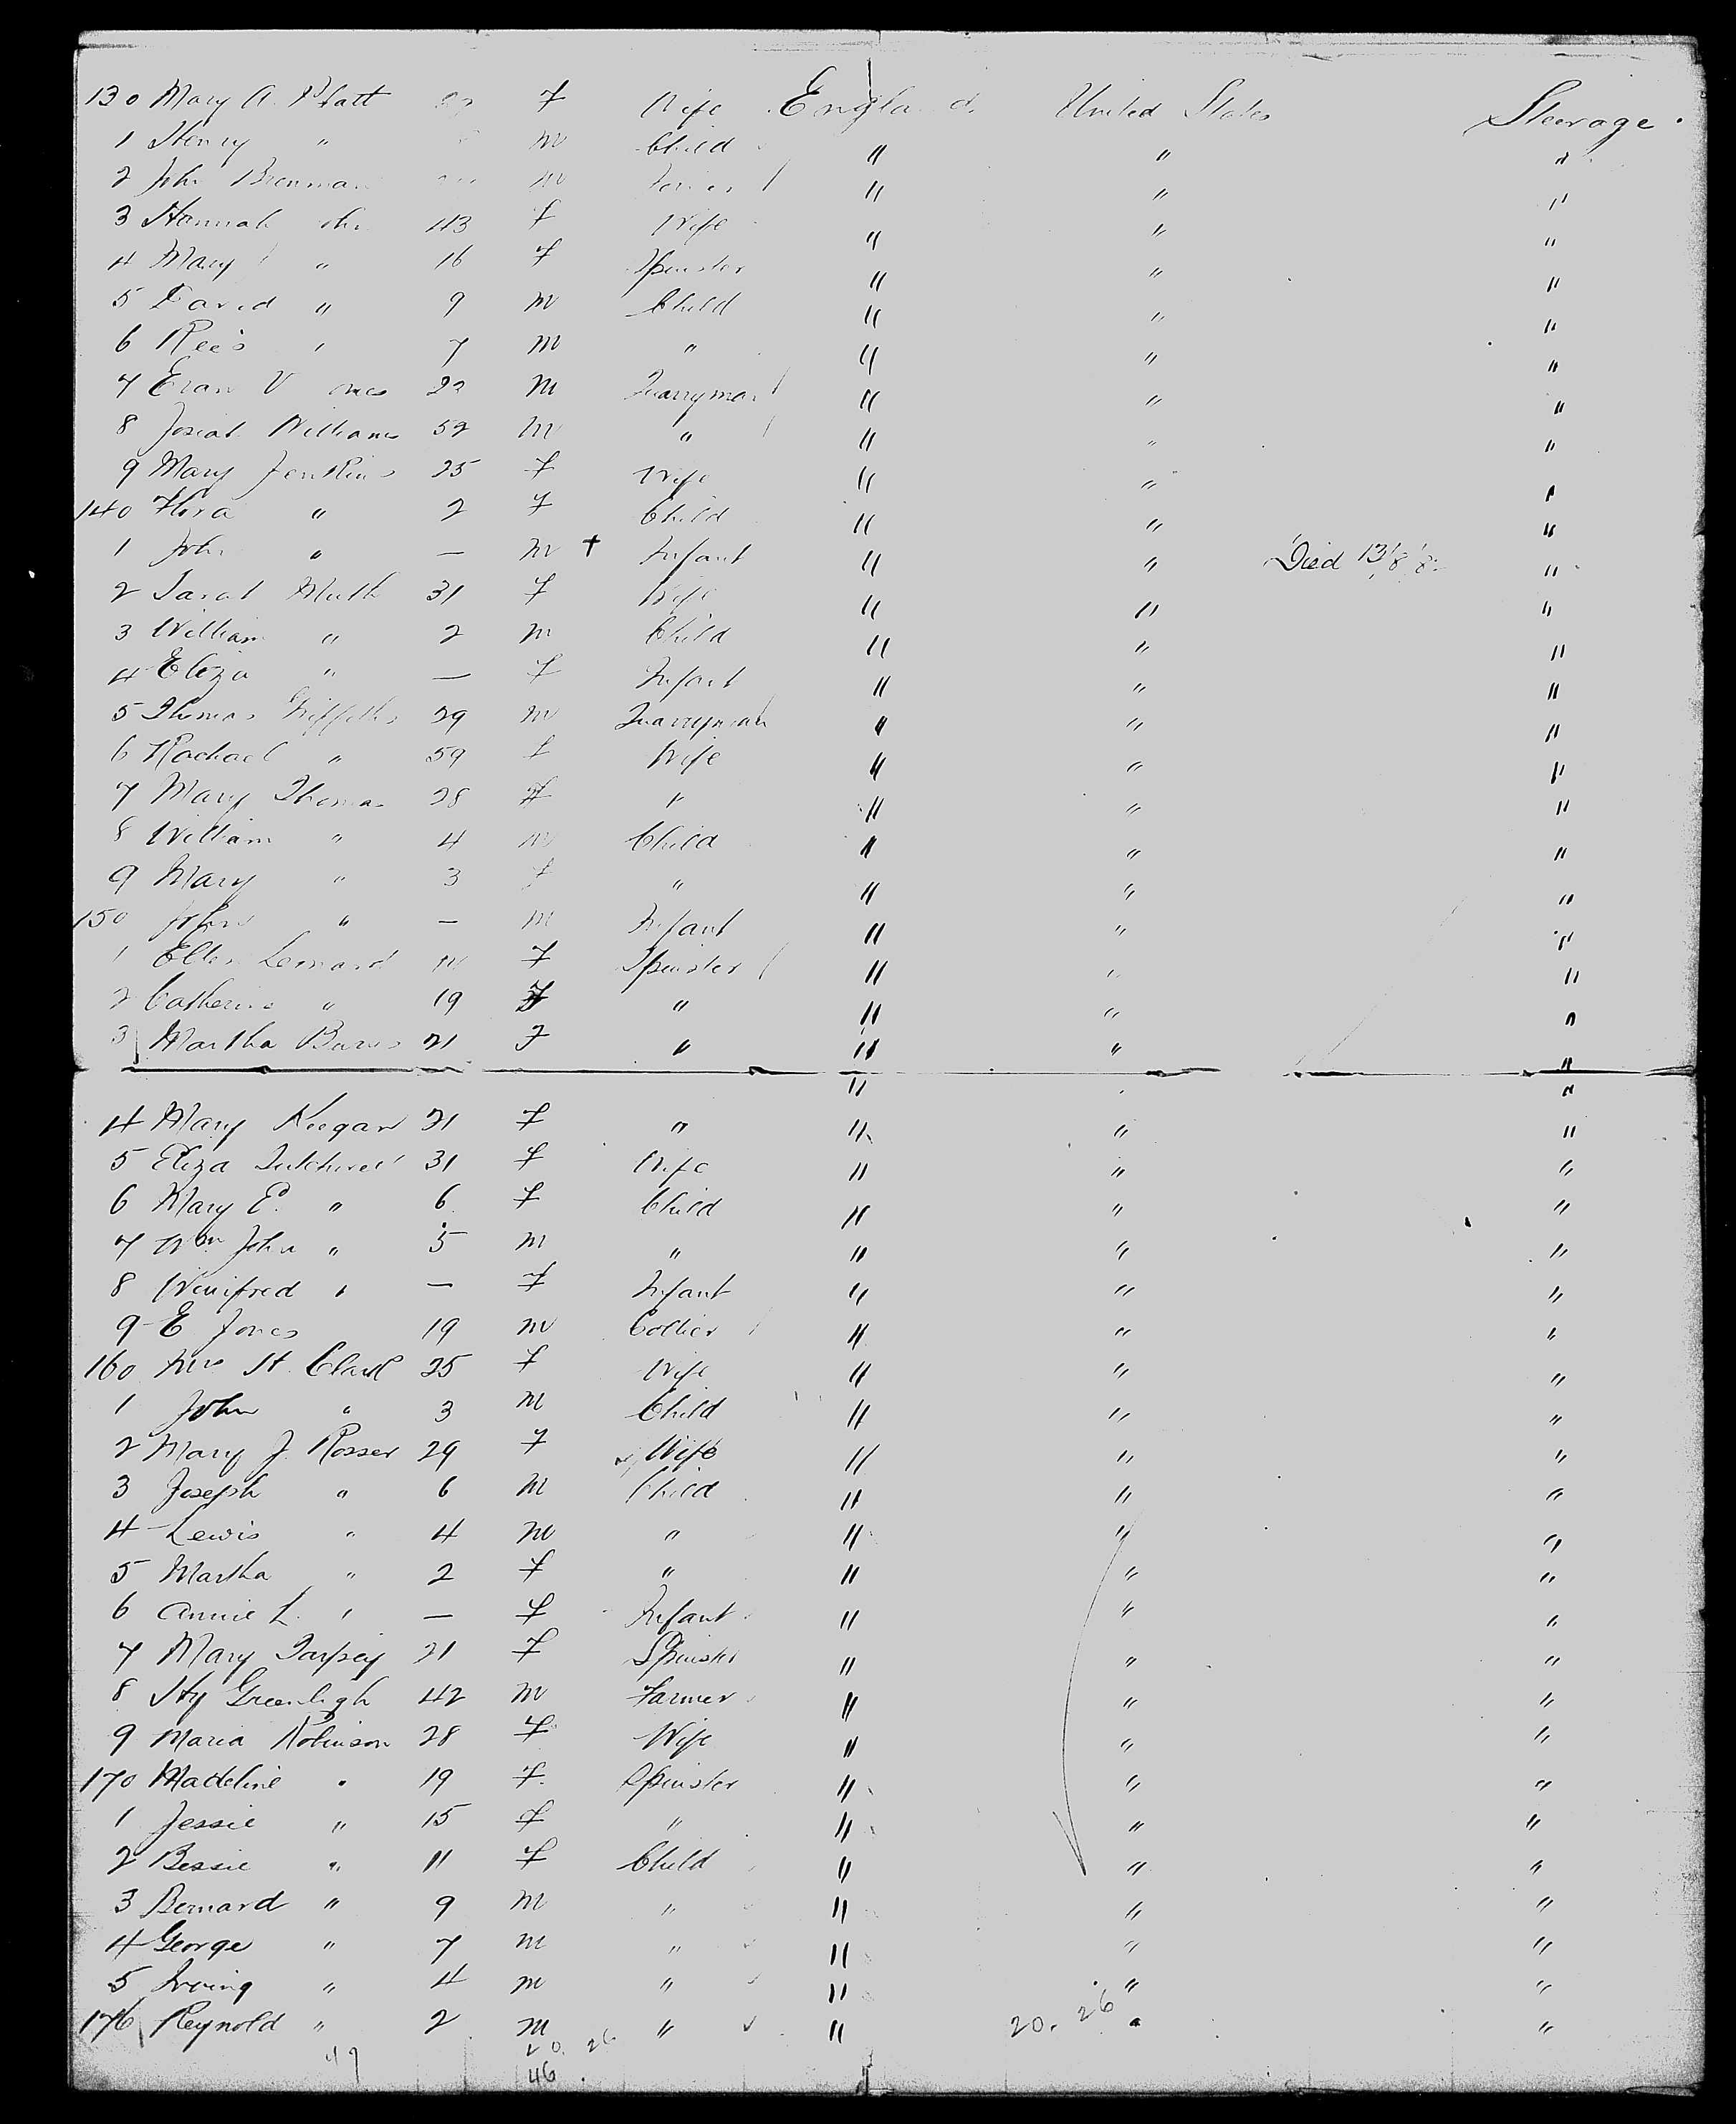 130 Mary A. Platt F Wife England United States Steerage.
1 Henry " M Child " " "
2 John Brennan M " " "
3 Hannah 43 F Wife " " "
4 Mary " 16 F Spinster " " "
5 David " 9 M Child " " "
6 Rees " 7 M " " " "
7 Evan V 22 M Quarryman " " "
8 Josiah Williams 52 M " " " "
9 Mary Jenkins 25 F Wife " " "
140 Flora " 2 F Child " " "
1 John " — M + Infant " " Died 13/8/8 "
2 Sarah 31 F Wife " " "
3 William " 2 M Child " " "
4 Eliza " — F Infant " " "
5 Thomas Griffiths 29 M Quarryman " " "
6 Rachael " 59 F Wife " " "
7 Mary Thomas 28 F " " " "
8 William " 4 M Child " " "
9 Mary " 3 F " " " "
150 John " — M Infant " " "
1 Ellen Lennard F Spinster " " "
2 Catherine " 19 F " " " "
3 Martha Burns 21 F " " " "
4 Mary Keegan 21 F " " " "
5 Eliza 31 F Wife " " "
6 Mary E. " 6 F Child " " "
7 Wm John " 5 M " " " "
8 Winifred " — F Infant " " "
9 E Jones 19 M Collier " " "
160 Mrs H. Clark 25 F Wife " " "
1 John " 3 M Child " " "
2 Mary J. Rosser 29 F Wife " " "
3 Joseph " 6 M Child " " "
4 Lewis " 4 M " " " "
5 Martha " 2 F " " " "
6 Annie L. " — F Infant " " "
7 Mary Tarpey 21 F Spinster " " "
8 Hy Greenhigh 42 M Farmer " " "
9 Maria Robinson 28 F Wife " " "
170 Madeline " 19 F. Spinster " " "
1 Jessie " 15 F " " " "
2 Bessie " 11 F Child " " "
3 Bernard " 9 M " " " "
4 George " 7 M " " " "
5 Irving " 4 M " " " "
176 Reynold " 2 M " " 20. 26 " "
47 20. 26
46